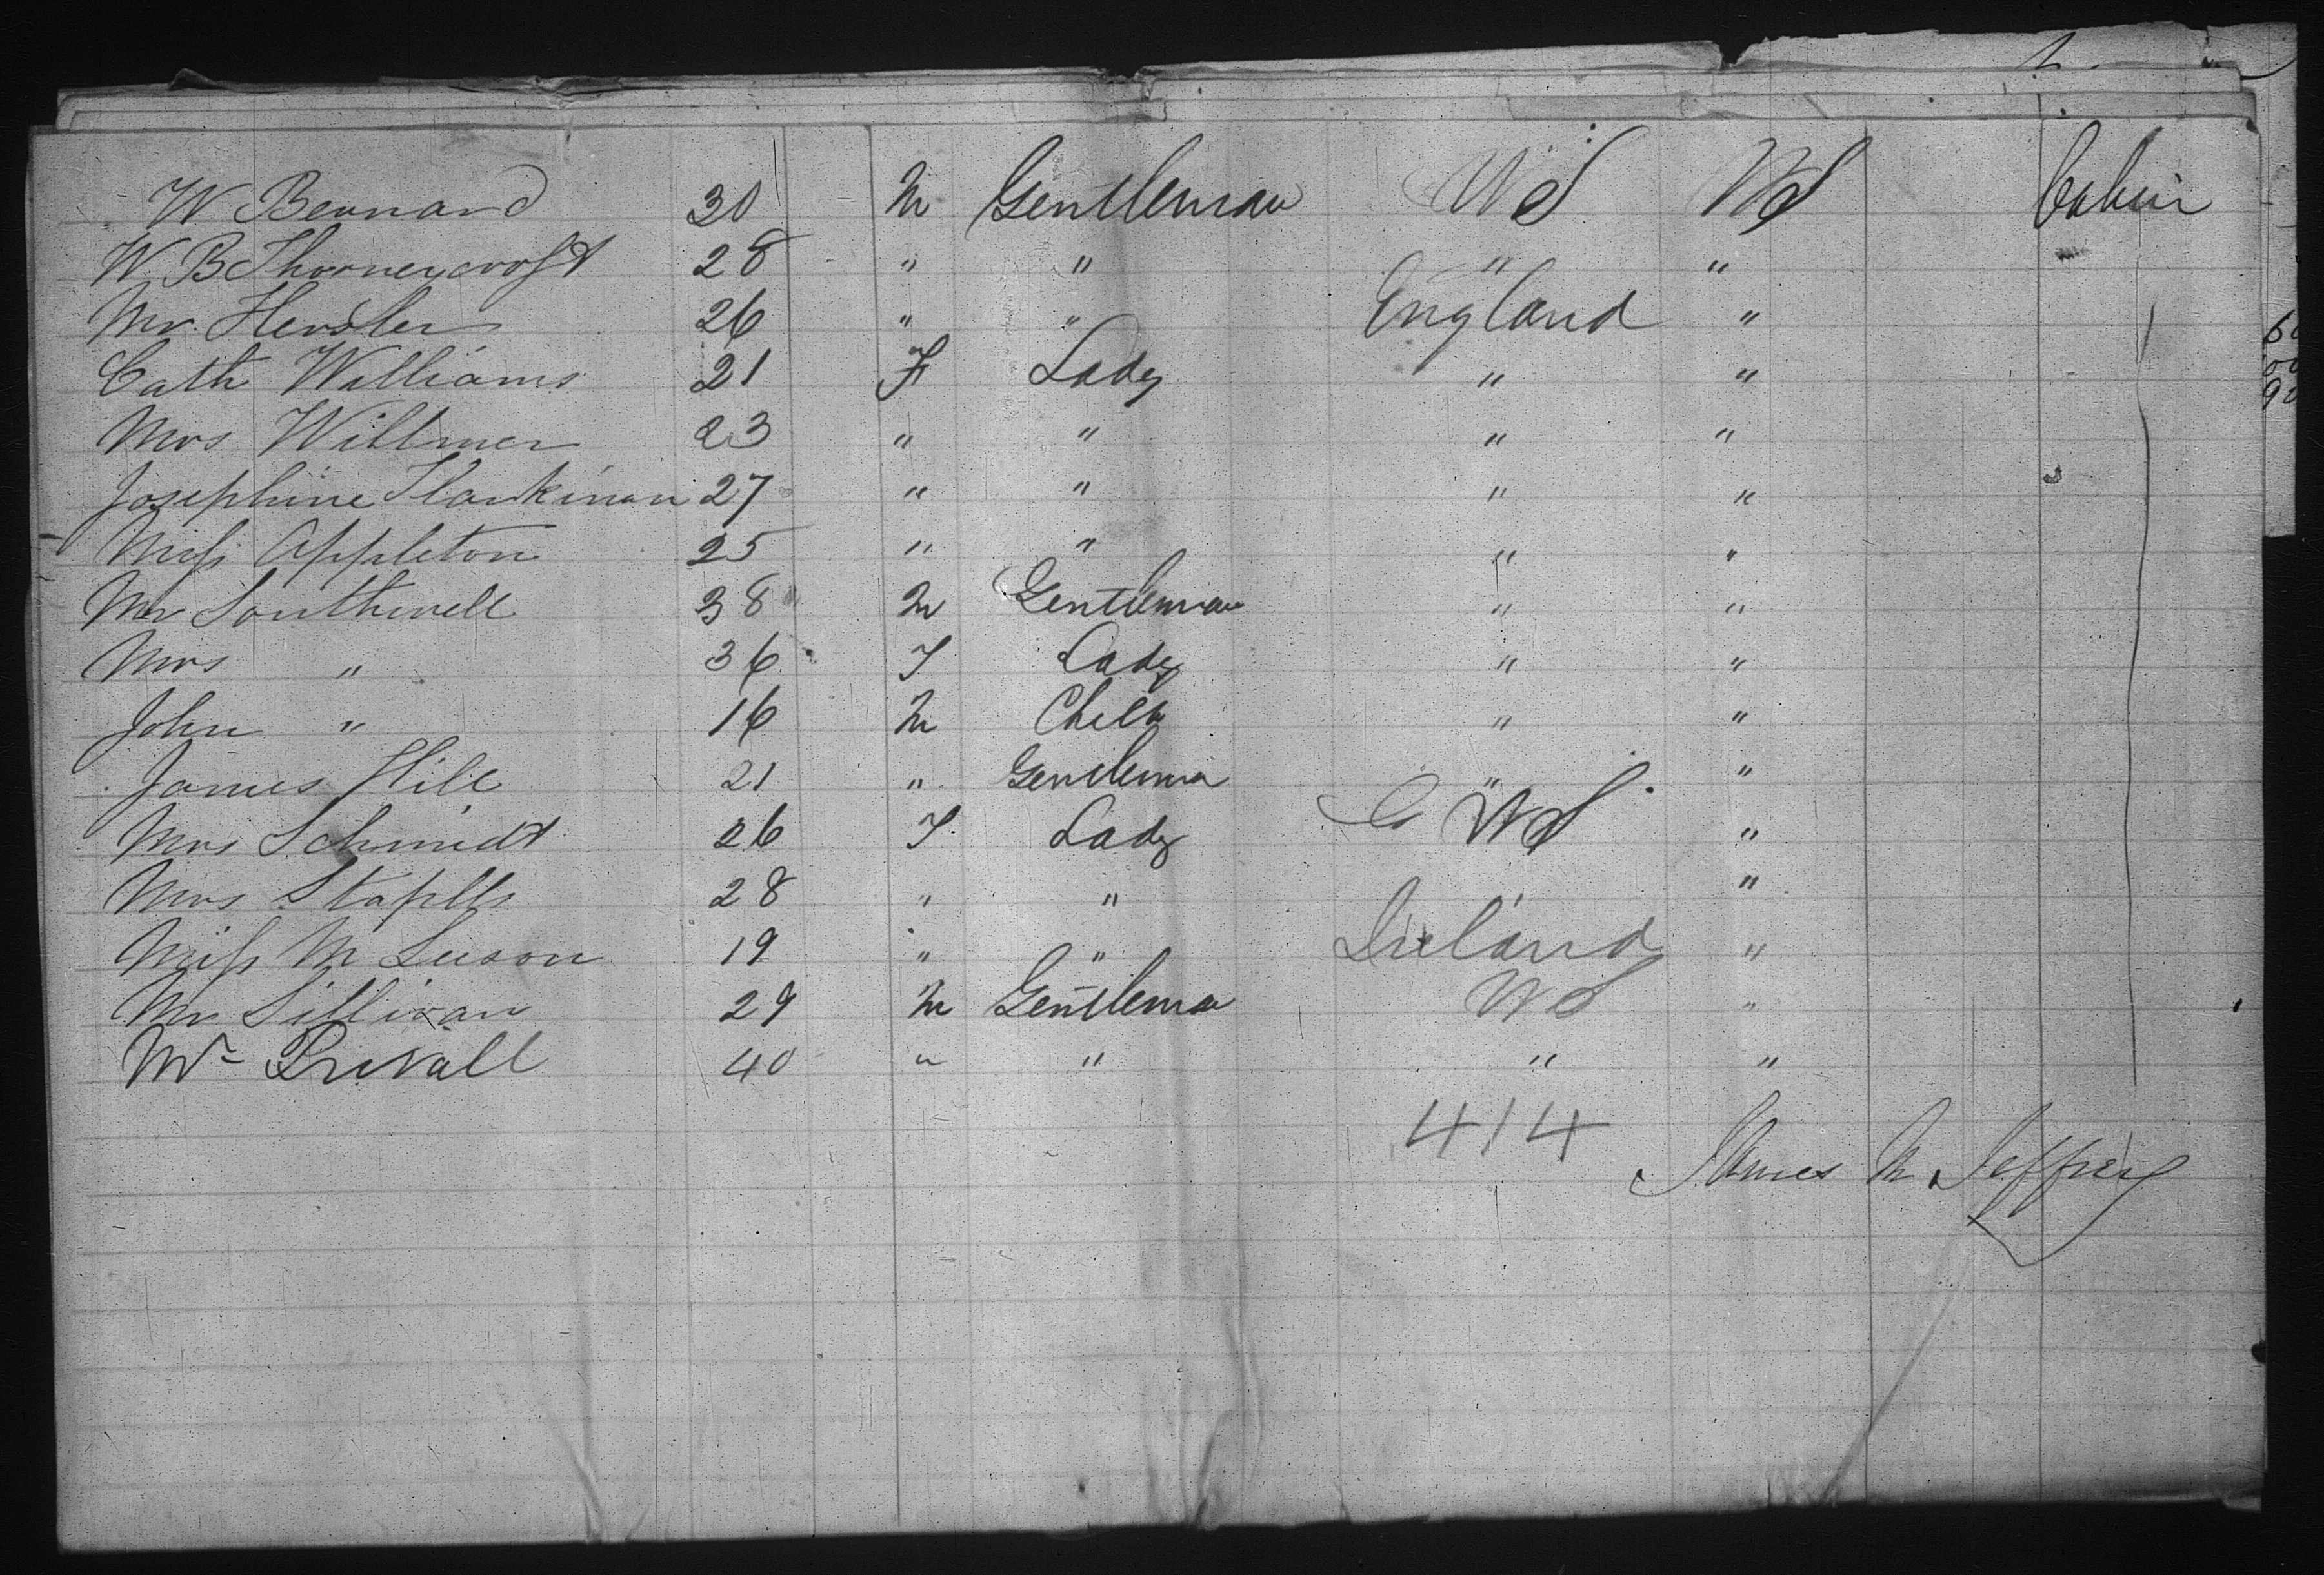 W Bernard 30 M Gentleman US US Cabin
W. B Thornercroft 28 " " " "
Mr. Hensler 26 " " England "
Cath Williams 21 F Lady " "
Mrs Willmer 23 " " " "
Josephine 27 " " " "
Miss Appleton 25 " " " "
Mr Southwell 38 M Gentleman " "
Mrs " 36 F Lady " "
John " 16 M Child " "
James Hill 21 " Gentleman " "
Mrs Schmidt 26 F Lady US "
Mrs Staplls 28 " " "
Miss M Luson 19 " " Ireland "
Mr Sillivan 29 M Gentleman US "
Mr 40 " " " "
414
James M Jeffrey